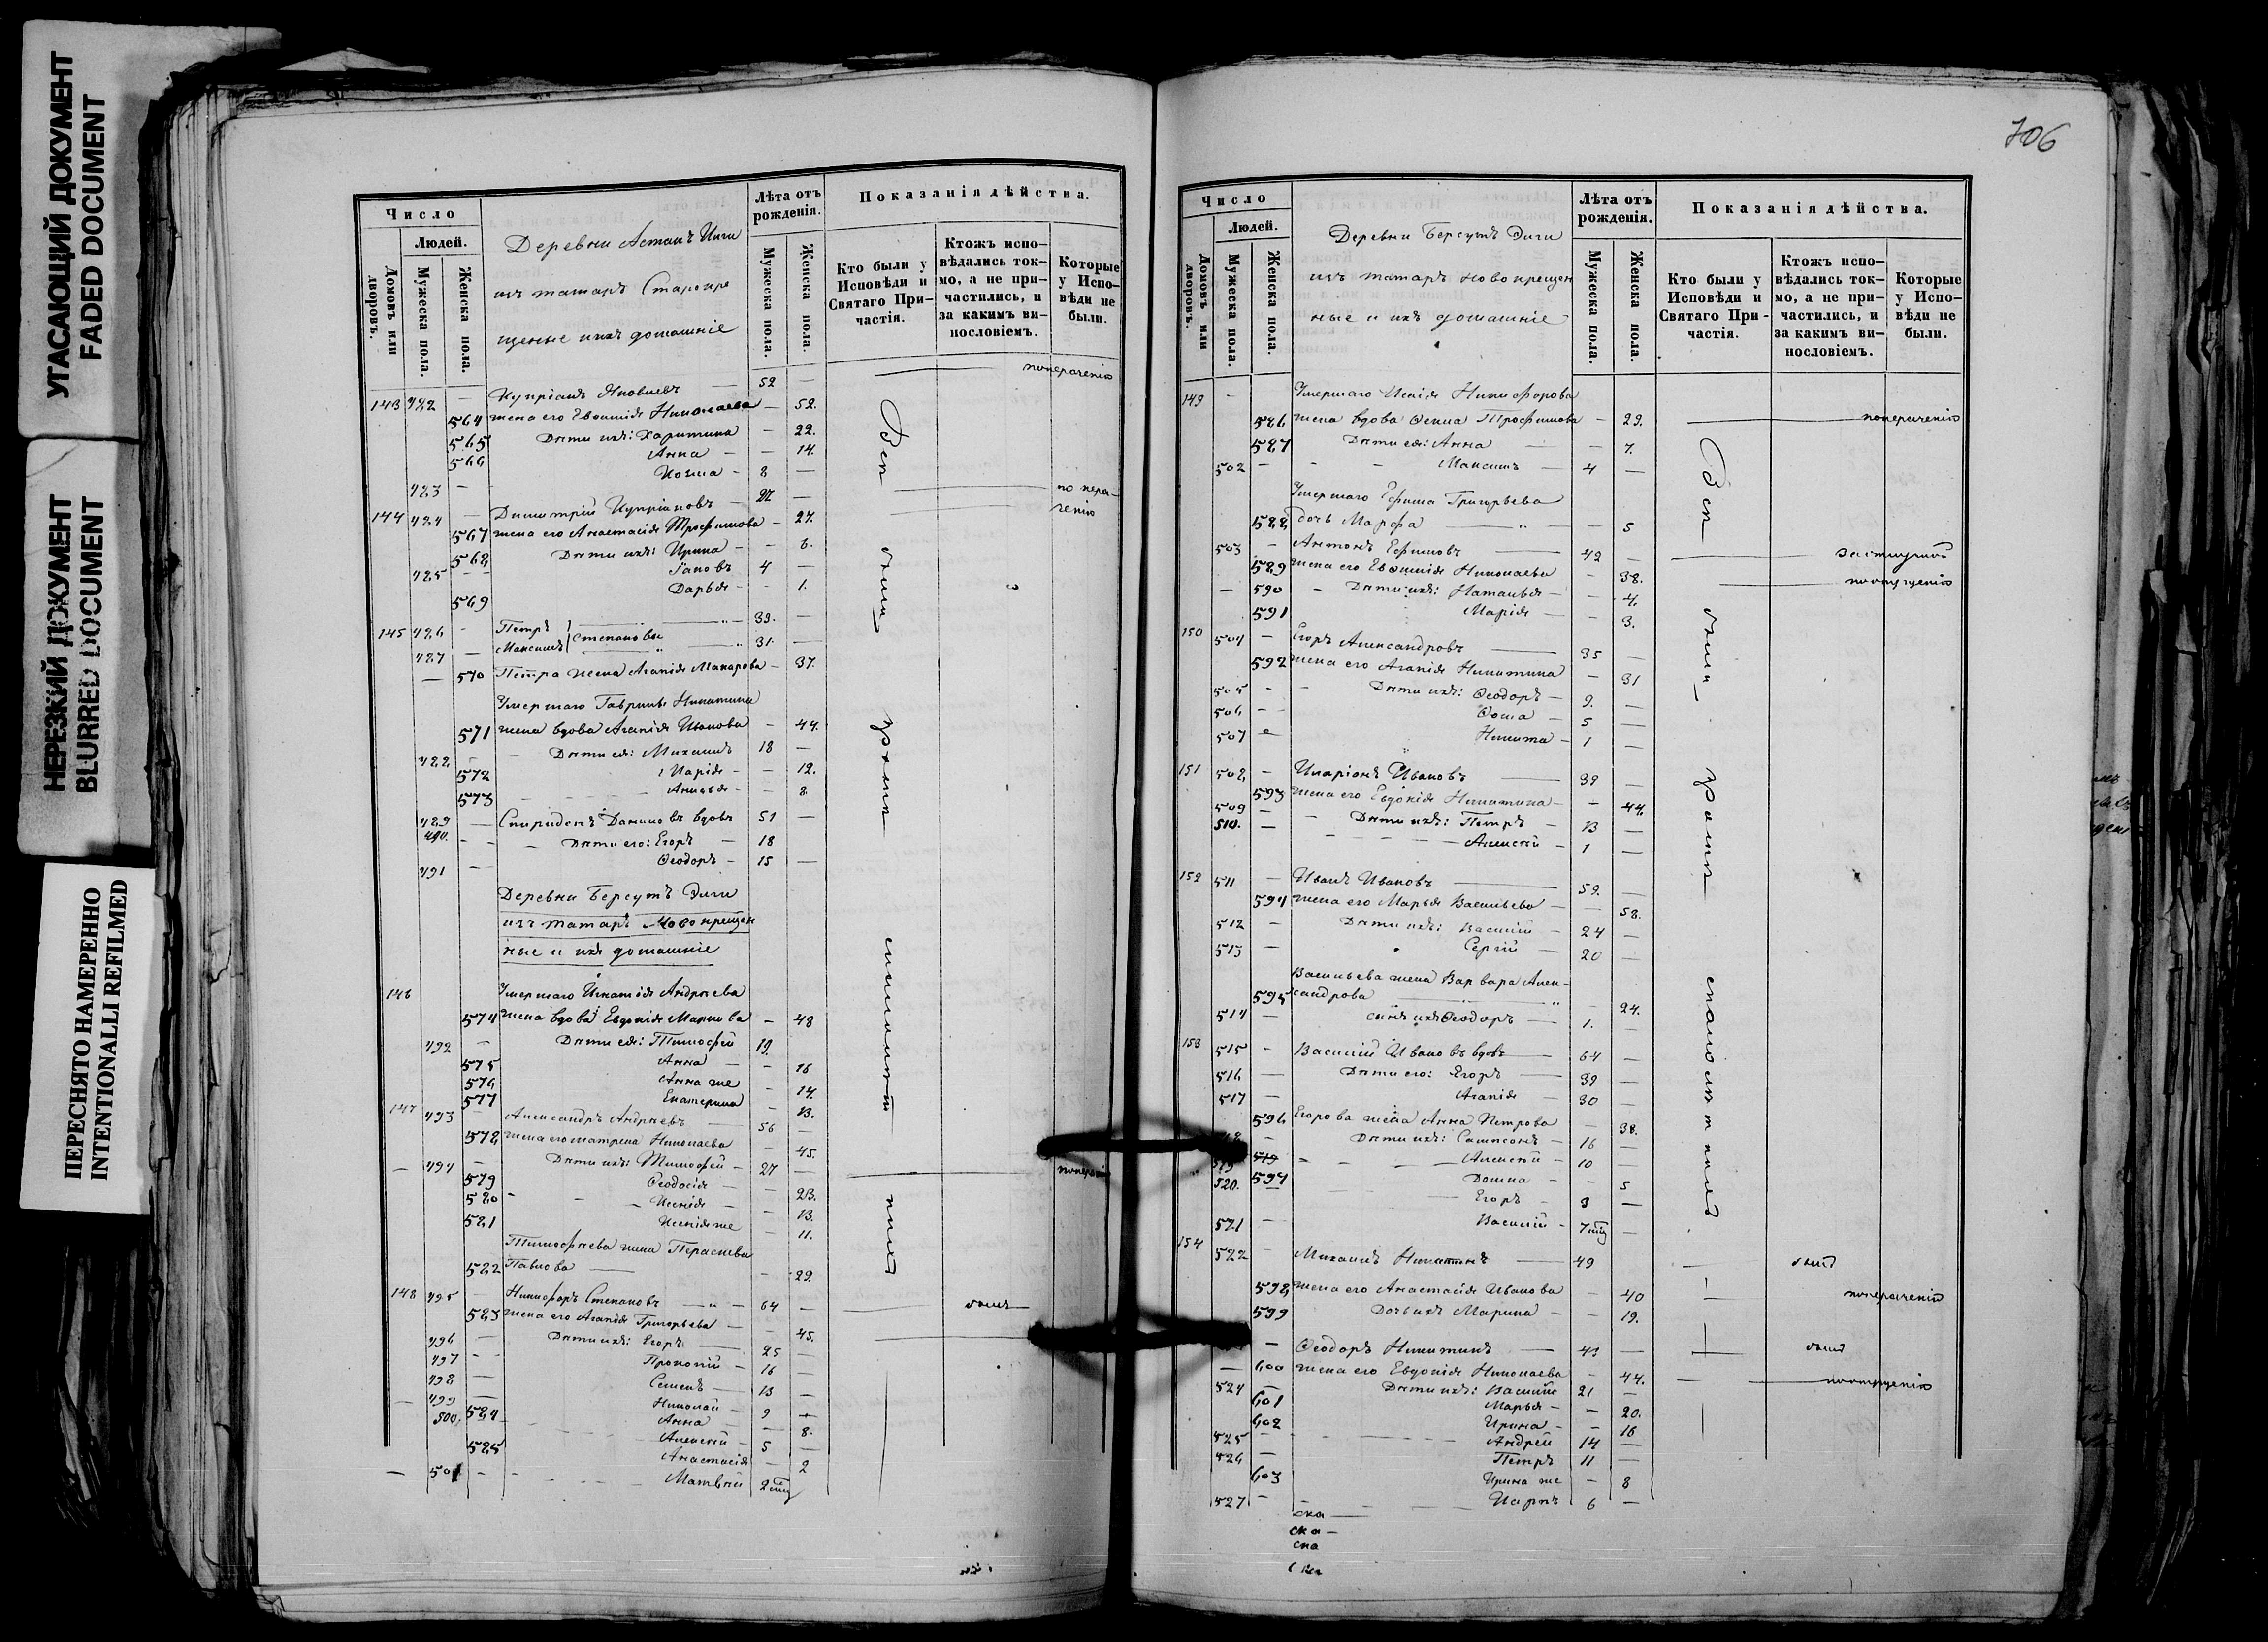 УГАСАЮЩИЙ ДОКУМЕНТ
FADED DOCUMENT
НЕРЕЗКИЙ ДОКУМЕНТ
BLURRED DOCUMENT
ПЕРЕСНЯТО НАМЕРЕННО
INTENTIONALLI REFILMED
Число
Людей.
Домовъ или дворовъ.
Мужеска пола.
Женска пола.
Деревни Астанъ Илги
изъ татаръ Старокре
щеные и ихъ домашніе
Лѣта отъ рожденія.
Мужеска пола.
Женска пола.
Показанія дѣйства.
Кто были у Исповѣди и Святаго При-частія.
Ктожъ испо-вѣдались ток-мо, а не при-частились, и за какимъ ви-нословіемъ.
Которые у Испо-вѣди не были.
143 482 — Купріанъ Яковлевъ — 52 —
564 жена его Евѳимія Николаева — 52.
565 Дѣти ихъ: Харитина — 22.
566 Анна — 14.
483 — Козма — 8 —
144 484 — Димитрій Купріановъ — 27 —
567 жена его Анастасія Трофимова — 27.
568 Дѣти ихъ: Ирина — 6.
485 — Іаковъ 4 —
569 Дарья — 1.
145 486 — Петръ — 39. —
487 — Максимъ Степановы 31. —
570 Петра жена Агапія Макарова — 37.
Умершаго Гавріила Никитина
571 жена вдова Агапія Иванова — 44.
488 — Дѣти ея: Михаилъ 18 —
572 Марія — 12.
573 — 8.
489 — Спиридонъ Даниловъ вдовъ 51 —
490. — Дѣти его: Егоръ 18
491 — Ѳеодоръ — 15 —
Деревни Берсутъ Элги
изъ татаръ Новокрещен
ные и ихъ домашніе
146 Умершаго Игнатія Андреева
574 жена вдова Евдокія Маркова — 48
492 — Дѣти ея: Тимофей 19.
575 Анна — 16
576 Анна же — 14.
577 Екатерина — 13.
147 493 — Александръ Андреевъ — 56 —
578 жена его Матрена Николаева — 45.
494 — Дѣти ихъ: Тимофей — 27 —
579 Ѳеодосія — 23.
580 Ксенія — 13.
581 Ксенія же — 11.
Тимофеева жена Параскева
582 Павлова — 29.
148 495 — Никифоръ Степановъ — 64 —
583 жена его Агапія Григорьева — 45.
496 — Дѣти ихъ: Егоръ 25 —
497 — Прокопій — 16 —
498 — Семенъ — 13 —
499 — Николай — 9 —
584 Анна — 8.
500. Алексѣй — 5 —
585 Анастасія — 2
501 — Матвѣй 2 мц
Всѣ были русскій
706
Число
Людей.
Домовъ или дворовъ.
Мужеска пола.
Женска пола.
Деревни Берсутъ Элги
изъ татаръ новокрещен
ные и ихъ домашніе
Лѣта отъ рожденія.
Мужеска пола.
Женска пола.
Показанія дѣйства.
Кто были у Исповѣди и Святаго При-частія.
Ктожъ испо-вѣдались ток-мо, а не при-частились, и за какимъ ви-нословіемъ.
Которые у Испо-вѣди не были.
149 — Умершаго Никифорова
586 жена вдова Ѳекла Трофимова — 29.
587 Дѣти ея: Анна — 7.
502 — Максимъ — 4 —
Умершаго Ефима Григорьева
588 дочь Марфа — 5
503 — Антонъ Ефимовъ — 42 —
589 жена его Евѳимія Николаева — 38.
590 — Дѣти ихъ: Наталья — 4.
591 Марія — 3.
150 504 — Егоръ Александровъ — 35 —
592 жена его Агапія Никитина — 31
505 — Дѣти ихъ: Ѳеодоръ — 9. —
506 — Ѳома — 5 —
507 Никита — 1 —
151 508 — Иларіонъ Ивановъ — 39 —
593 жена его Евдокія Никитина — 44.
509 — Дѣти ихъ: Петръ — 13 —
510. — Алексѣй — 1 —
152 511 — Иванъ Ивановъ — 59. —
594 жена его Марья Васильева — 58.
512 — Дѣти ихъ: Василій — 24 —
513 — Сергій — 20 —
Васильева жена Варвара Алек-
595 сандрова — 24.
514 — сынъ ихъ Ѳеодоръ — 1. —
153 515 — Василій Ивановъ вдовъ — 64 —
516 — Дѣти его: Егоръ — 39 —
517 — Агапія — 30 —
596 Егорова жена Анна Петрова — 38.
Дѣти ихъ: Сампсонъ — 16 —
519 Алексѣй — 10 —
597 Домна — 5
520. — Егоръ — 3 —
521 — Василій — 7 мц —
154 522 — Михаилъ Никитинъ — 49 былъ
598 жена его Анастасія Иванова — 40
599 Дочь ихъ Марина — 19.
— Ѳеодоръ Никитинъ — 43 — былъ
600 жена его Евдокія Николаева — 44.
524 — Дѣти ихъ: Василій 21 —
601 Марья — 20.
602 Ирина — 16
525 — Андрей 14 —
526 — Петръ 11 —
603 Ирина же — 8
527 — Карпъ 6 —
Всѣ были
ска —
ска —
ска